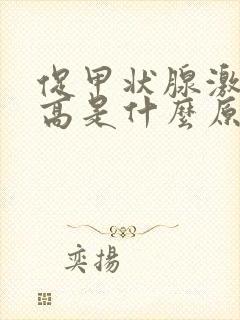 促甲状腺激
高是什麼原
奕揚